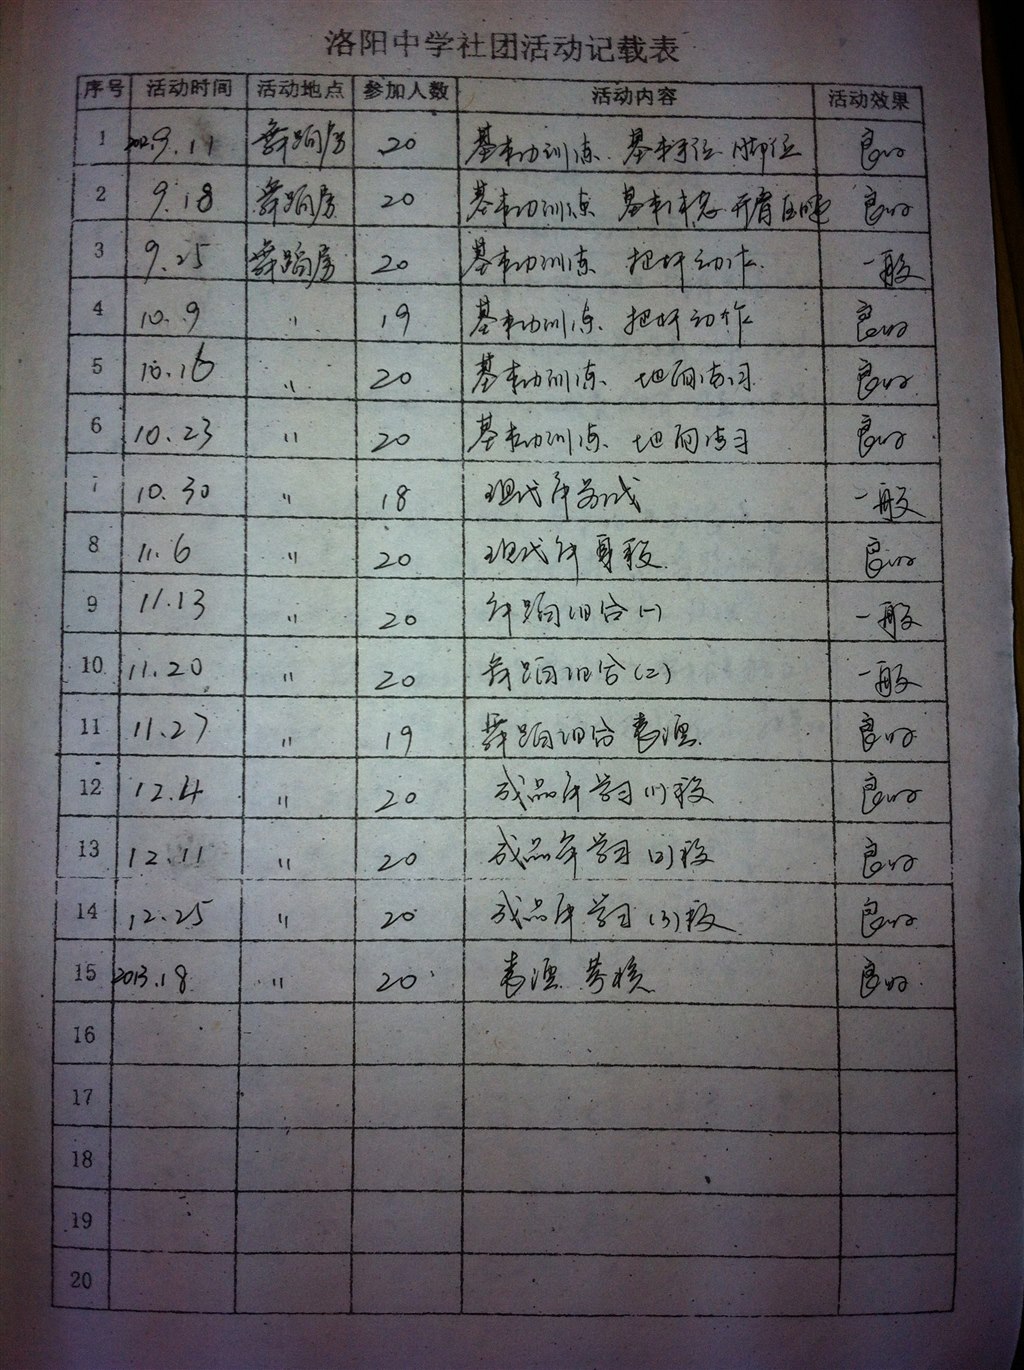 洛阳中学社团活动记载表
序号 活动时间 活动地点 参加人数 活动内容 活动效果
1 2012.9.11 舞蹈房 20 基本功训练 基本手位 脚位 良好
2 9.18 舞蹈房 20 基本功训练 基本 开肩 压腿 良好
3 9.25 舞蹈房 20 基本功训练 把杆动作 一般
4 10.9 〃 19 基本功训练 把杆动作 良好
5 10.16 〃 20 基本功训练 地面练习 良好
6 10.23 〃 20 基本功训练 地面练习 良好
7 10.30 〃 18 现代舞 一般
8 11.6 〃 20 现代舞 良好
9 11.13 〃 20 舞蹈组合(一) 一般
10 11.20 〃 20 舞蹈组合(2) 一般
11 11.27 〃 19 舞蹈组合 表演 良好
12 12.4 〃 20 成品舞学习(1)段 良好
13 12.11 〃 20 成品舞学习(2)段 良好
14 12.25 〃 20 成品舞学习(3)段 良好
15 2013.1.8 〃 20 表演 考核 良好
16
17
18
19
20